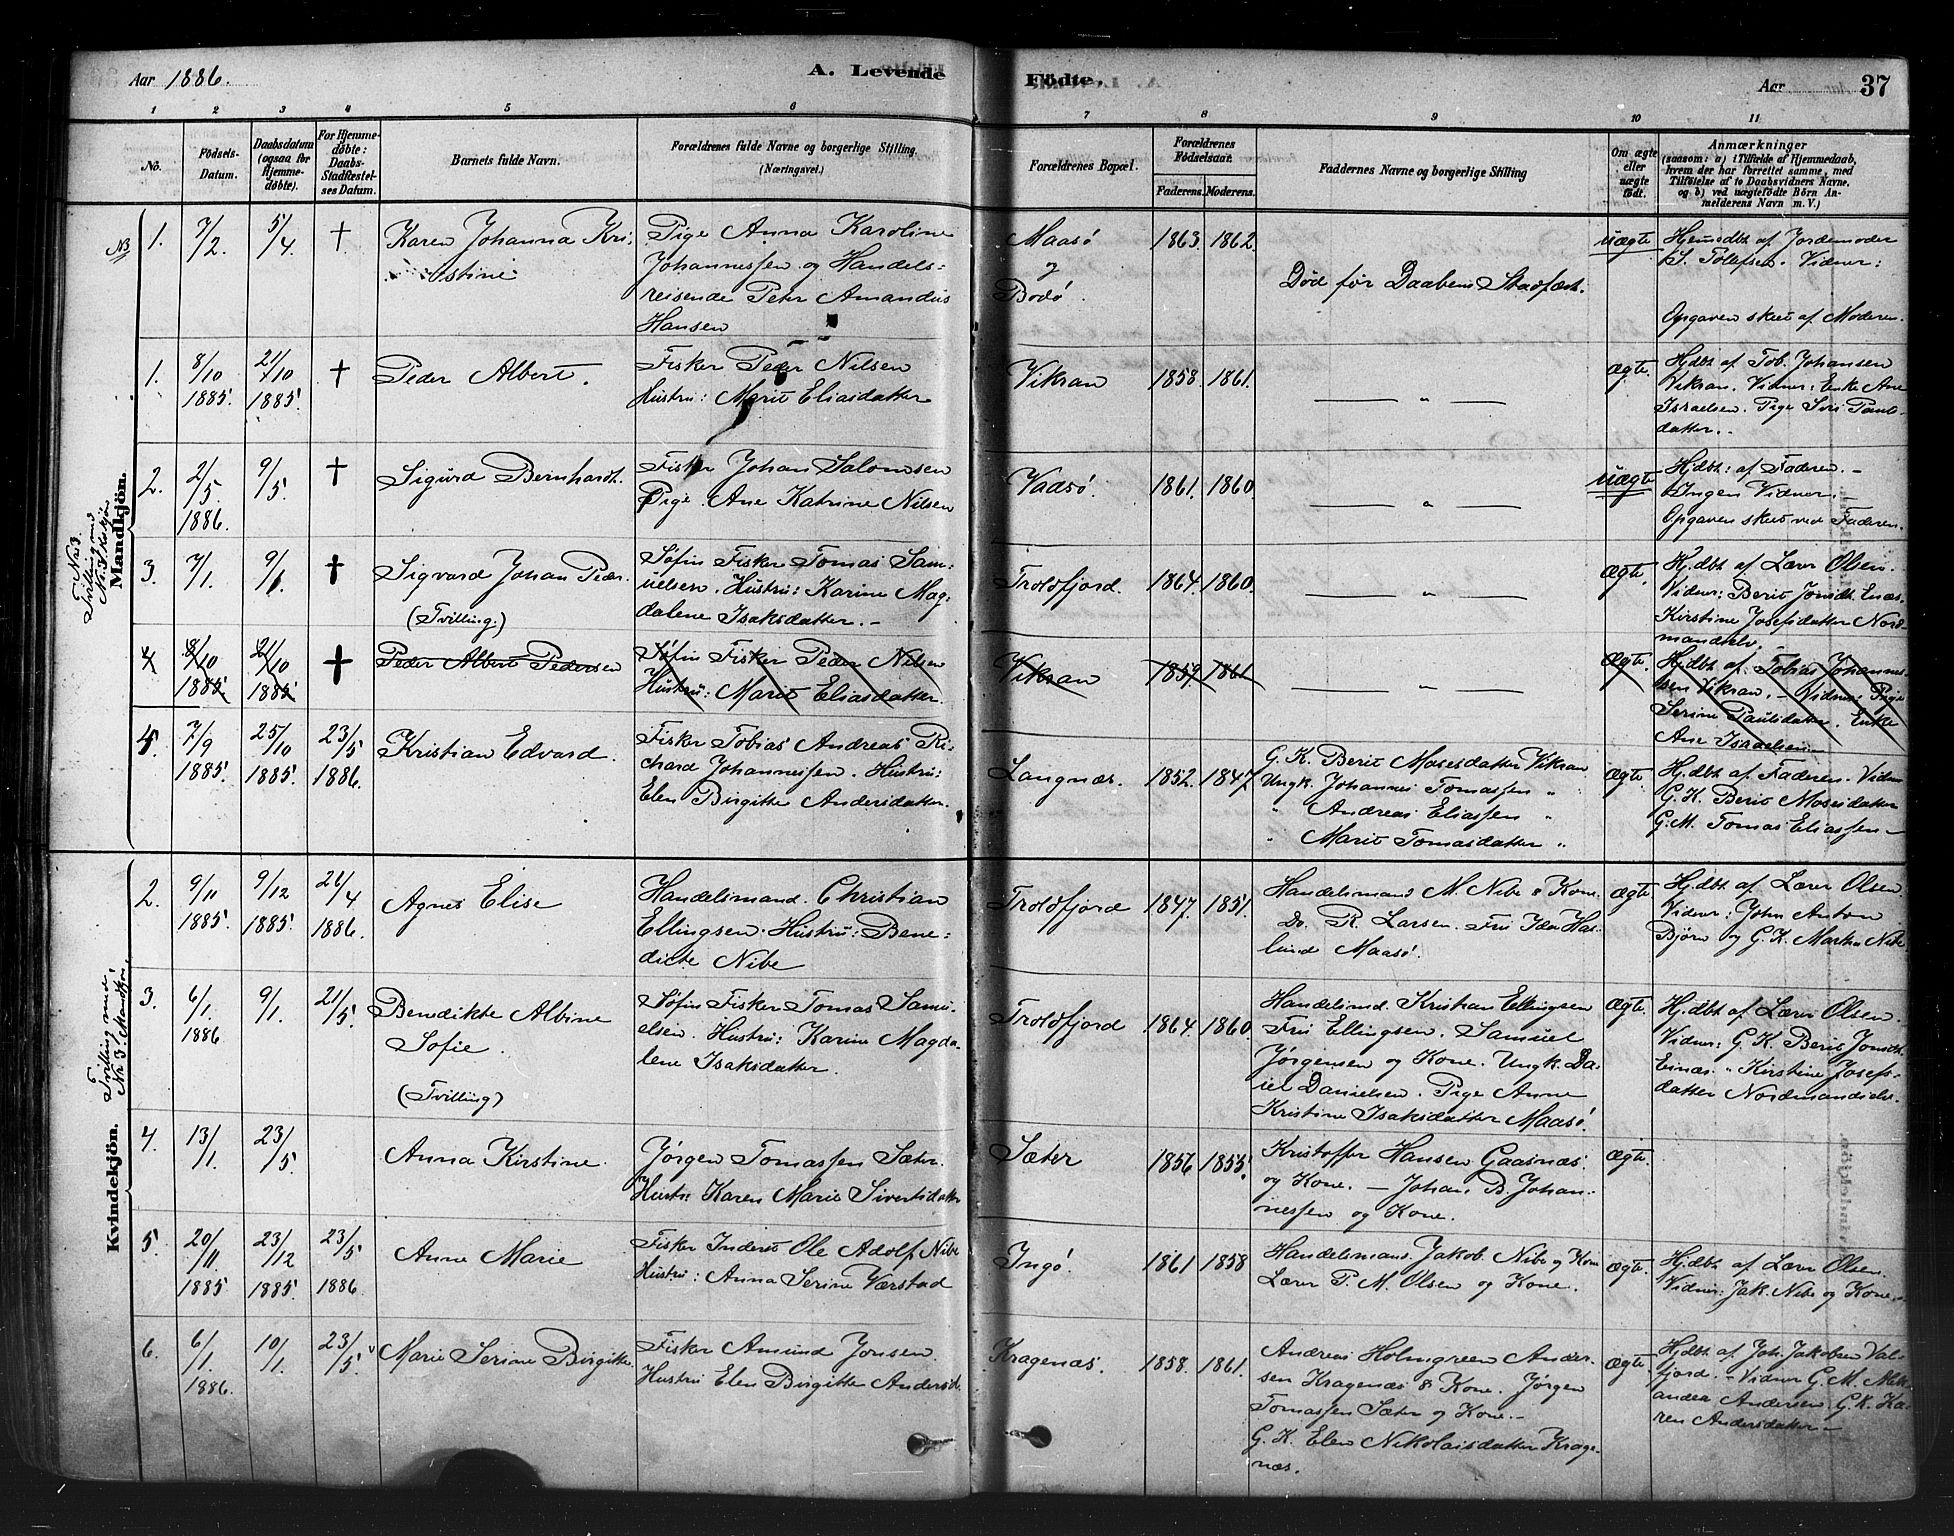 Aar 1886. A. Levende Födte. Aar 37
1 2 3 4 5 6 7 8 9 10 11
No. Födsels-Datum. Daabsdatum (ogsaa for Hjemme-döbte). For Hjemme-döbte: Daabs-Stadfæstel-ses Datum. Barnets fulde Navn. Forældrenes fulde Navne og borgerlige Stilling (Næringsvei.) Forældrenes Bopæl. Forældrenes Födselsaar. Faderens. Moderens. Faddernes Navne og borgerlige Stilling Om ægte eller uægte födt. Anmærkninger (saasom: a) i Tilfælde af Hjemmedaab, hvem der har forrettet samme, med Tilföielse af to Daabsvidners Navne, og b) ved uægtefödte Börn An-melderens Navn m. V.)
1. 7/2 5/4 † Karen Johanna Kri-
stine
Pige Anna Karoline
Johannessen og Handels-
reisende Peter Amandus
Hansen
Maasö
og
Bodö.
1863. 1862.
Död før Daabens Stadfæst.
uægte
Hjemdbt af Jordemoder
S. Tollefsen. Vidner:
Opgaven skeet af Moderen.
Mandkjön.
1. 8/10 1885. 21/10 1885. † Peder Albert.
Fisker Peder Nilsen
Hustru: Marit Eliasdatter
Viksran 1858 1861.
— " —
ægte.
Hjdbt af Tob. Johansen
Viksran. Vidner: Enke Ane
Israelsen. Pige Paul-
datter.
2. 2/5 1886. 9/5 † Sigurd Bernhardt.
Fisker Johan Salomsen
Pige Ane Katrine Nilsen
Vadsö. 1861. 1860
— " —
uægte
Hjdbt: af Faderen. —
Ingen Vidner. —
Opgaven skeet ved Faderen.
No 3. Tvilling med No 3 Kvkjön
3. 7/1. 9/1 † Sigvard Johan Peder.
(Tvilling.)
Søfin Fisker Tomas Sam-
uelsen. Hustru: Karine Mag-
dalene Isaksdatter. —
Troldfjord. 1864. 1860.
— " —
Ægte.
Hj.dbt af Lærer Olsen.
Vidner: Berit Jonsdt.
Kirstine Josefsdatter Nord-
mandselv.
4. 8/10 1885. 21/10 1885 † Peder Albert Pedersen
Søfin Fisker Peder Nilsen
Hustru: Marit Eliasdatter.
Viksran 1859. 1861
— " —
Ægte.
Hj.dbt af Tobias Johannes-
sen Viksran. — Vidner: Pige
Serine Paulsdatter. Enke
Ane Israelsen —
4. 7/9 1885. 25/10 1885. 23/5 1886. Kristian Edvard.
Fisker Tobias Andreas Ri-
chard Johannessen. Hustru:
Elen Birgitte Andersdatter.
Langnæs. 1852. 1847.
G. K. Berit Mosesdatter Viksran
Ungk. Johannes Tomassen "
" Andreas Eliassen "
" Marit Tomasdatter "
Ægte.
Hj.dbt af Faderen. Vidn
G. K. Berit Mosesdatter
G. M. Tomas Eliassen —
Kvindekjön.
2. 9/11 1885. 9/12 1885. 26/4 1886. Agnes Elise
Handelsmand. Christian
Ellingsen. Hustru: Bene-
dicte Nibe
Troldfjord 1847. 1851.
Handelsmand M. Nibe & Kone.
Do. R. Larsen. Fru Ida Has-
lund Maasö.
Ægte
Hj.dbt af Lærer Olsen
Vidner: John Anton
Bjørn og G. K. Martha Nibe
Tvilling med No 3 Mandkjön.
3. 6/1 1886. 9/1. 21/5. Benedikte Albine
Sofie.
(Tvilling)
Søfin Fisker Tomas Samu-
elsen. Hustru: Karine Magda-
lene Isaksdatter.
Troldfjord 1864. 1860.
Handelsmd. Kristian Ellingsen
Fru Ellingsen. Samuel
Jørgensen og Kone. Ungk. Da-
niel Danielsen. Pige Anne
Kristine Isaksdatter Maasö.
Ægte
Hj.dbt af Lærer Olsen.
Vidner: G. K. Berit Jonsdt.
" Kirstine Josefs-
datter Nordmandselv.
4. 13/1. 23/5 Anna Kirstine.
Jørgen Tomassen Sæter.
Hustr: Karen Marie Sivertsdatter
Sæter 1856 1855.
Kristoffer Hansen Gaasnæs.
og Kone. — Johan B. Johan-
nessen og Kone.
Ægte.
5. 20/11 1885 23/12 1885. 23/5 1886. Anne Marie
Fisker Inderst Ole Adolf Nibe
Hustru: Anna Serine Værstad
Ingö. 1861 1858
Handelsmand Jakob Nibe og Kone
Lærer P. M. Olsen og Kone.
ægte.
Hj.dbt af Lærer Olsen.
Vidner: Jak. Nibe og Kone. —
6. 6/1. 1886. 10/1. 23/5. Marie Serine Birgitte
Fisker Amund Jonsen.
Hustru Elen Birgitte Andersd.
Kragenæs. 1858. 1861.
Andreas Holmgreen Ander-
sen Kragenæs & Kone. Jørgen
Tomassen Sæter og Kone. —
G. K. Elen Nikolaisdatter Krage-
næs.
ægte.
Hj.dbt af Joh. Jakobsen Val-
fjord. — Vidner G. M.
Andersen. G. K. Ka-
ren Andersdatter —